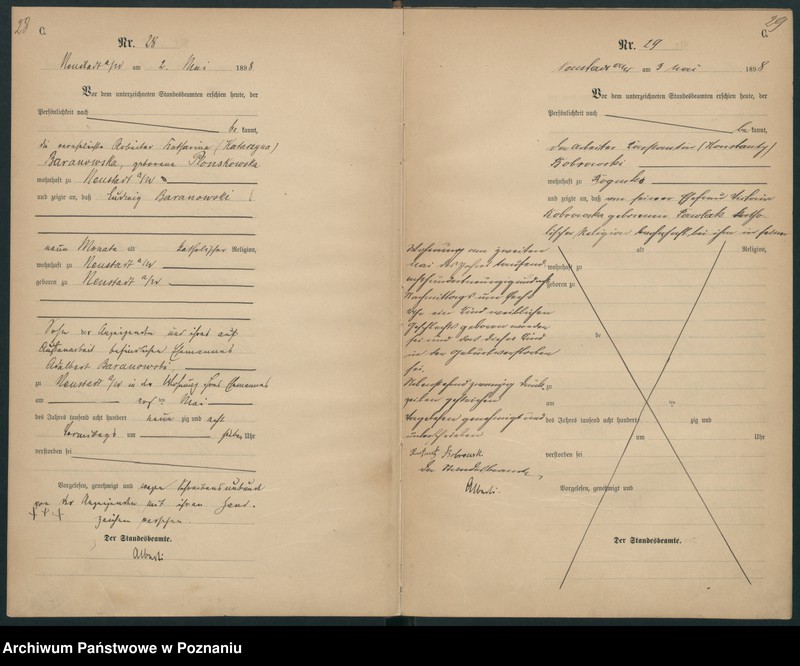 28
C.
Nr. 28
Neustadt a/W am 2. Mai 1898
Vor dem unterzeichneten Standesbeamten erschien heute, der
Persönlichkeit nach
be kannt,
die verehelichte Arbeiter Katharina (Katarzyna)
Baranowska, geborene Płonskowska
wohnhaft zu Neustadt a/W
und zeigte an, daß Ludwig Baranowski
neun Monate alt katholischer Religion,
wohnhaft zu Neustadt a/W
geboren zu Neustadt a/W
Sohn der Anzeigenden und ihres auf
Außenarbeit befindlichen Ehemannes
Adalbert Baranowski
zu Neustadt a/W in der Wohnung ihres Ehemannes
am Mai
des Jahres tausend acht hundert neun zig und acht
Vormittags um sieben Uhr
verstorben sei
Vorgelesen, genehmigt und wegen Schreibensunkunde
von der Anzeigenden mit ihrem Hand-
zeichen versehen.
+++
Der Standesbeamte.
Alberti
29
C.
Nr. 29
Neustadt a/W am 3 Mai 1898
Vor dem unterzeichneten Standesbeamten erschien heute, der
Persönlichkeit nach
be kannt,
der Arbeiter Konstantin (Konstanty)
Bobrowski
wohnhaft zu
und zeigte an, daß von seiner Ehefrau
Bobrowska geborenen Pawlak katho-
lischer Religion wohnhaft bei ihm in seiner
Wohnung am zweiten
Mai des Jahres tausend
achthundertneunzig und acht
Nachmittags um sechs
Uhr ein Kind weiblichen
Geschlechts geboren worden
sei und daß dieses Kind
in der Geburt verstorben
sei.
Nebenstehend zwanzig Druck-
zeilen gestrichen
Vorgelesen genehmigt und
unterschrieben
Bobrowski
Der Standesbeamte
Alberti
alt Religion,
wohnhaft zu
geboren zu
de
zu
am
des Jahres tausend acht hundert zig und
um Uhr
verstorben sei
Vorgelesen, genehmigt und
Der Standesbeamte.
Archiwum Państwowe w Poznaniu